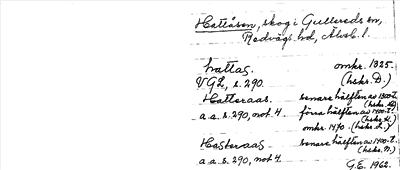 Hattåsen, skog i Gullereds sn,
Redvägs hd, Älvsb. l.
hattas. omkr. 1325.
VGL, s. 290. (hskr. D.)
Hatteraas. senare hälften av 1300-t.
(hskr. G)
a.a. s. 290, not 4. förra hälften av 1400-t.
omkr. 1470. (hskr. L.)
Hasteraas senare hälften av 1400-t.
a.a. s. 290, not 4.
G.E. 1962.